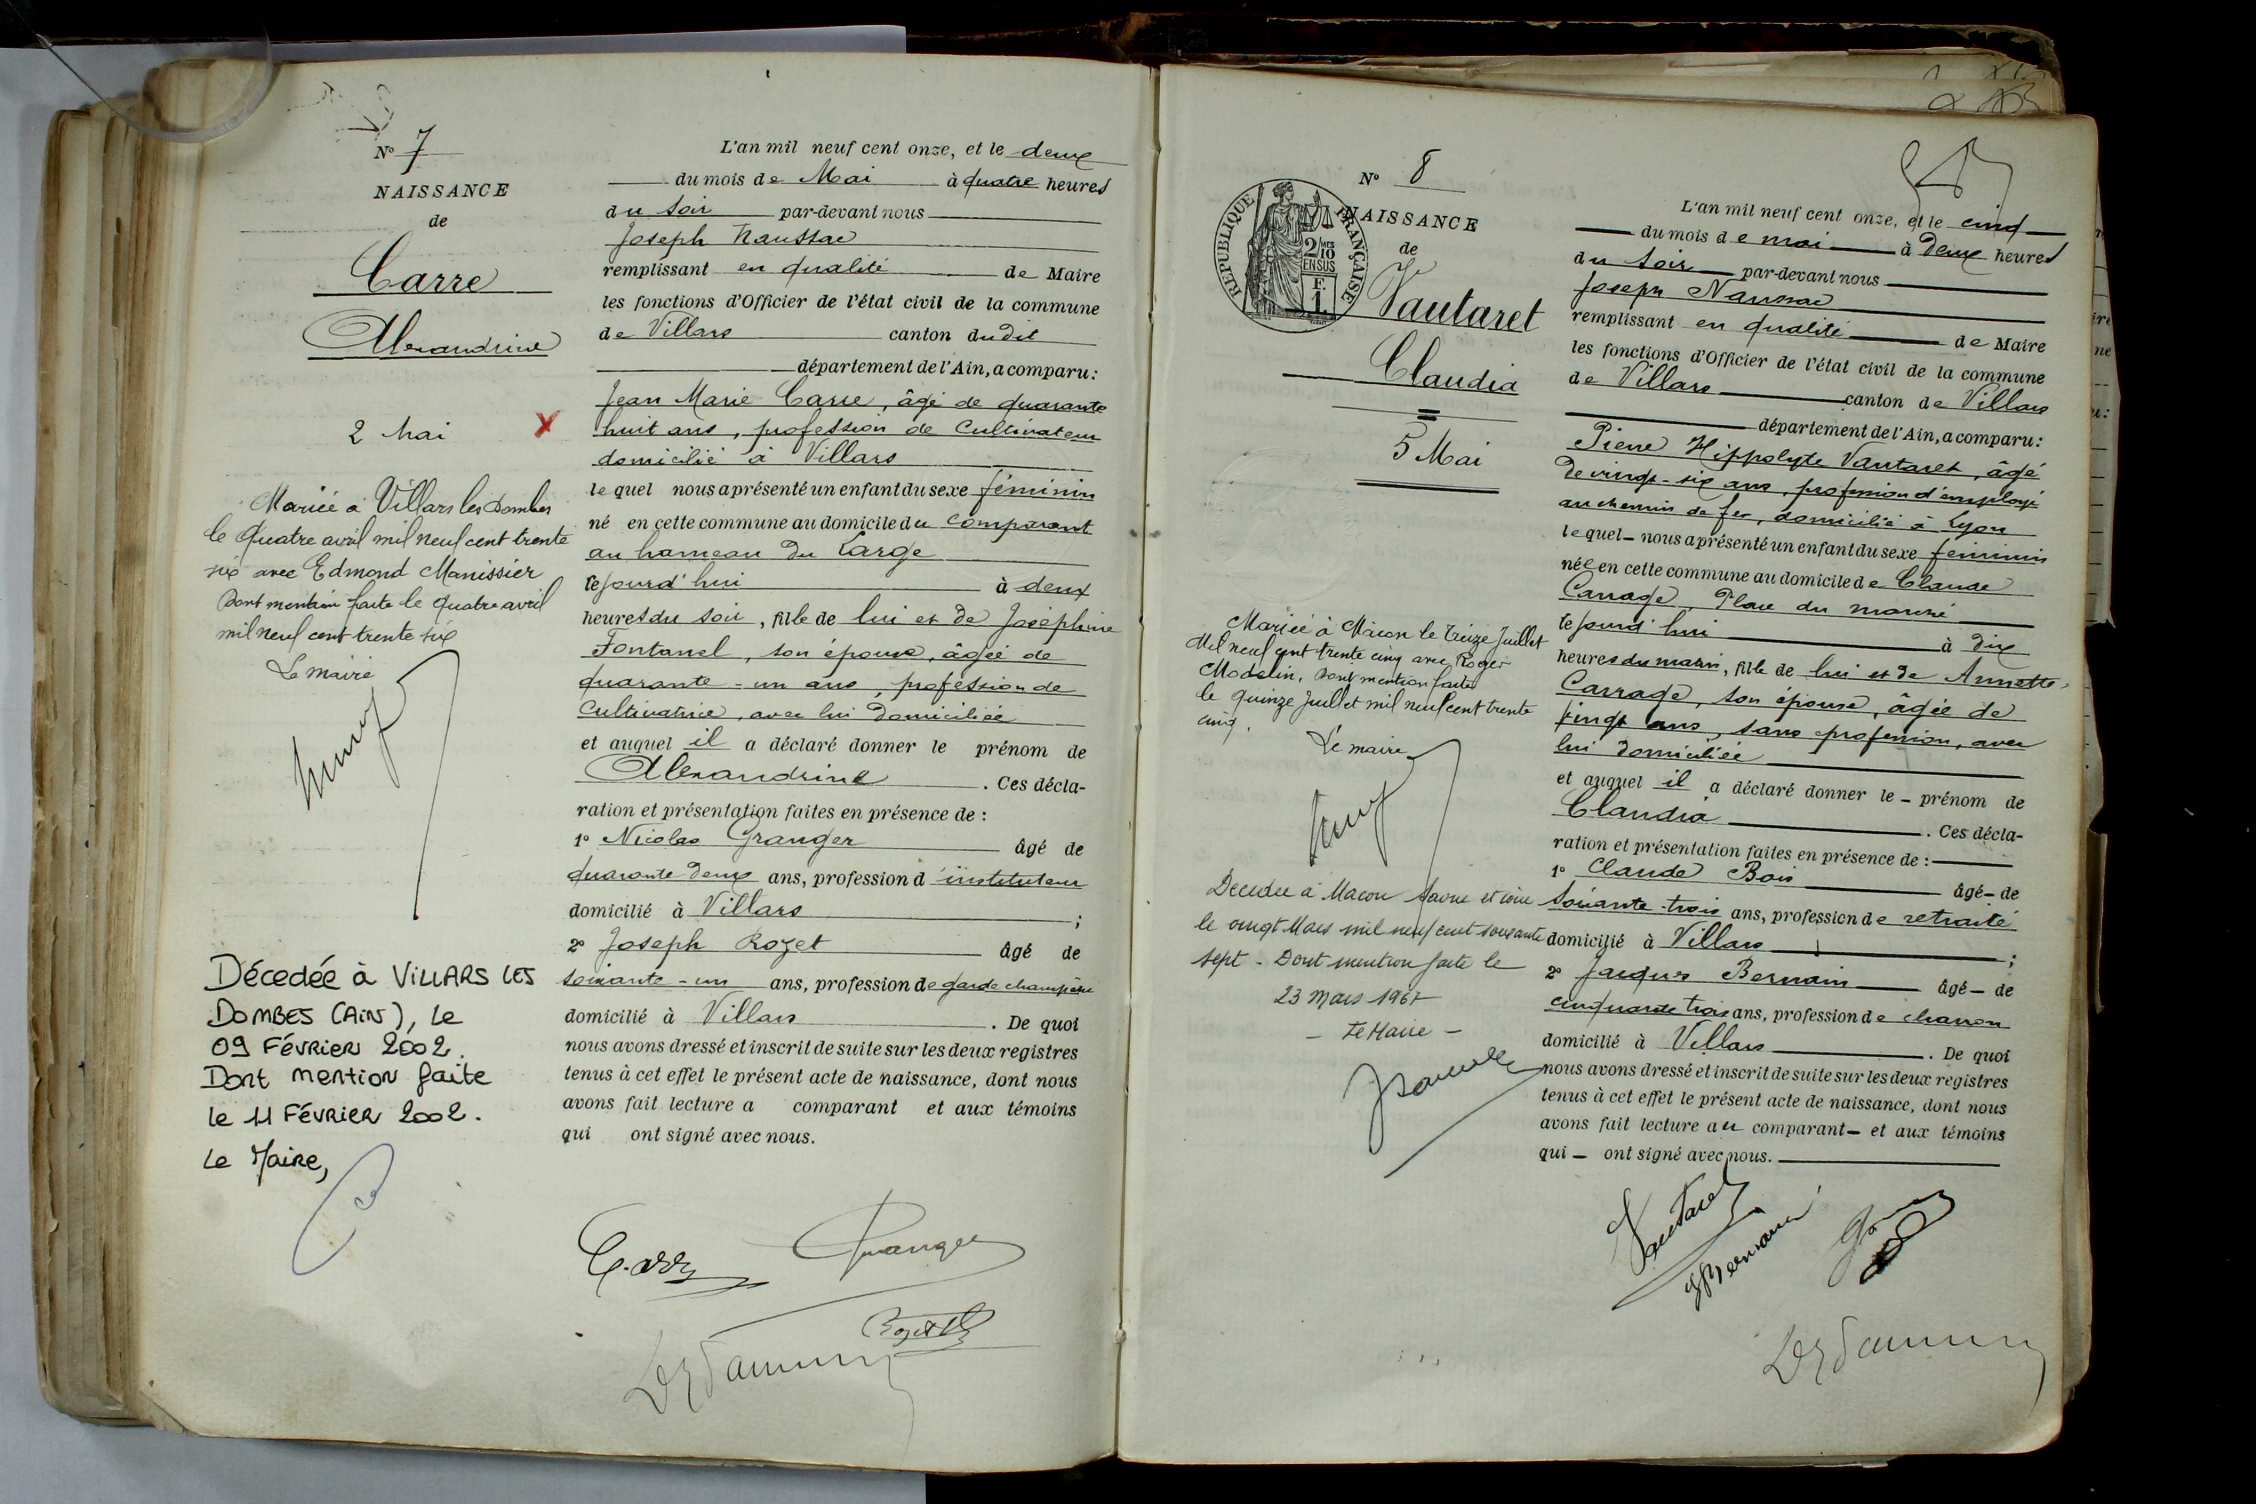 N° 7
NAISSANCE
de
Carre
Alexandrine
2 Mai
X
Mariée à Villars les Dombes
le quatre avril mil neuf cent trente
six avec Edmond Manissier
Dont mention faite le quatre avril
mil neuf cent trente six
Le maire
Décedée à VILLARS LES
DOMBES (AIN), Le
09 FÉVRIER 2002.
Dont mention faite
le 11 FÉVRIER 2002.
Le Maire,
L'an mil neuf cent onze, et le deux
du mois de Mai à quatre heures
du soir par-devant nous
Joseph Naussac
remplissant en qualité de Maire
les fonctions d'Officier de l'état civil de la commune
de Villars canton dudit
département de l'Ain, a comparu :
Jean Marie Carre, âgé de quarante
huit ans, profession de Cultivateur
domicilié à Villars
lequel nous a présenté un enfant du sexe féminin
né en cette commune au domicile du comparant
au hameau du Large
cejourd'hui à deux
heures du soir, fille de lui et de Joséphine
Fontanel, son épouse, âgée de
quarante-un ans, profession de
cultivatrice, avec lui domiciliée
et auquel il a déclaré donner le prénom de
Alexandrine . Ces décla-
ration et présentation faites en présence de :
1° Nicolas Granger âgé de
quarante deux ans, profession d'instituteur
domicilié à Villars ;
2° Joseph Rozet âgé de
soixante-un ans, profession de garde champêtre
domicilié à Villars . De quoi
nous avons dressé et inscrit de suite sur les deux registres
tenus à cet effet le présent acte de naissance, dont nous
avons fait lecture a comparant et aux témoins
qui ont signé avec nous.
Carre Granger
Rozet
N° 8
NAISSANCE
de
RÉPUBLIQUE FRANÇAISE
2/10MES
EN SUS
F.
1.
Vautaret
Claudia
5 Mai
Mariée à Mâcon le treize Juillet
Mil neuf cent trente cinq avec Roger
Modelin, dont mention faite
le quinze Juillet mil neuf cent trente
cinq.
Le maire
Décédée à Macon Saone et Loire
le vingt Mars mil neuf cent soixante
sept - Dont mention faite le
23 Mars 1967
- Le Maire -
L'an mil neuf cent onze, et le cinq
du mois de mai à deux heures
du soir par-devant nous
Joseph Naussac
remplissant en qualité de Maire
les fonctions d'Officier de l'état civil de la commune
de Villars canton de Villars
département de l'Ain, a comparu :
Pierre Hippolyte Vautaret, âgé
de vingt-six ans, profession d'employé
au chemin de fer, domicilié à Lyon
lequel nous a présenté un enfant du sexe féminin
née en cette commune au domicile de Claude
Carrage, Place du marché
cejourd'hui à dix
heures du matin, fille de lui et de Annette
Carrage, son épouse, âgée de
vingt ans, sans profession, avec
lui domiciliée
et auquel il a déclaré donner le prénom de
Claudia . Ces décla-
ration et présentation faites en présence de :
1° Claude Bois âgé de
soixante-trois ans, profession de retraité
domicilié à Villars ;
2° Jacques Bernain âgé de
cinquante trois ans, profession de charron
domicilié à Villars . De quoi
nous avons dressé et inscrit de suite sur les deux registres
tenus à cet effet le présent acte de naissance, dont nous
avons fait lecture au comparant et aux témoins
qui ont signé avec nous.
Vautaret